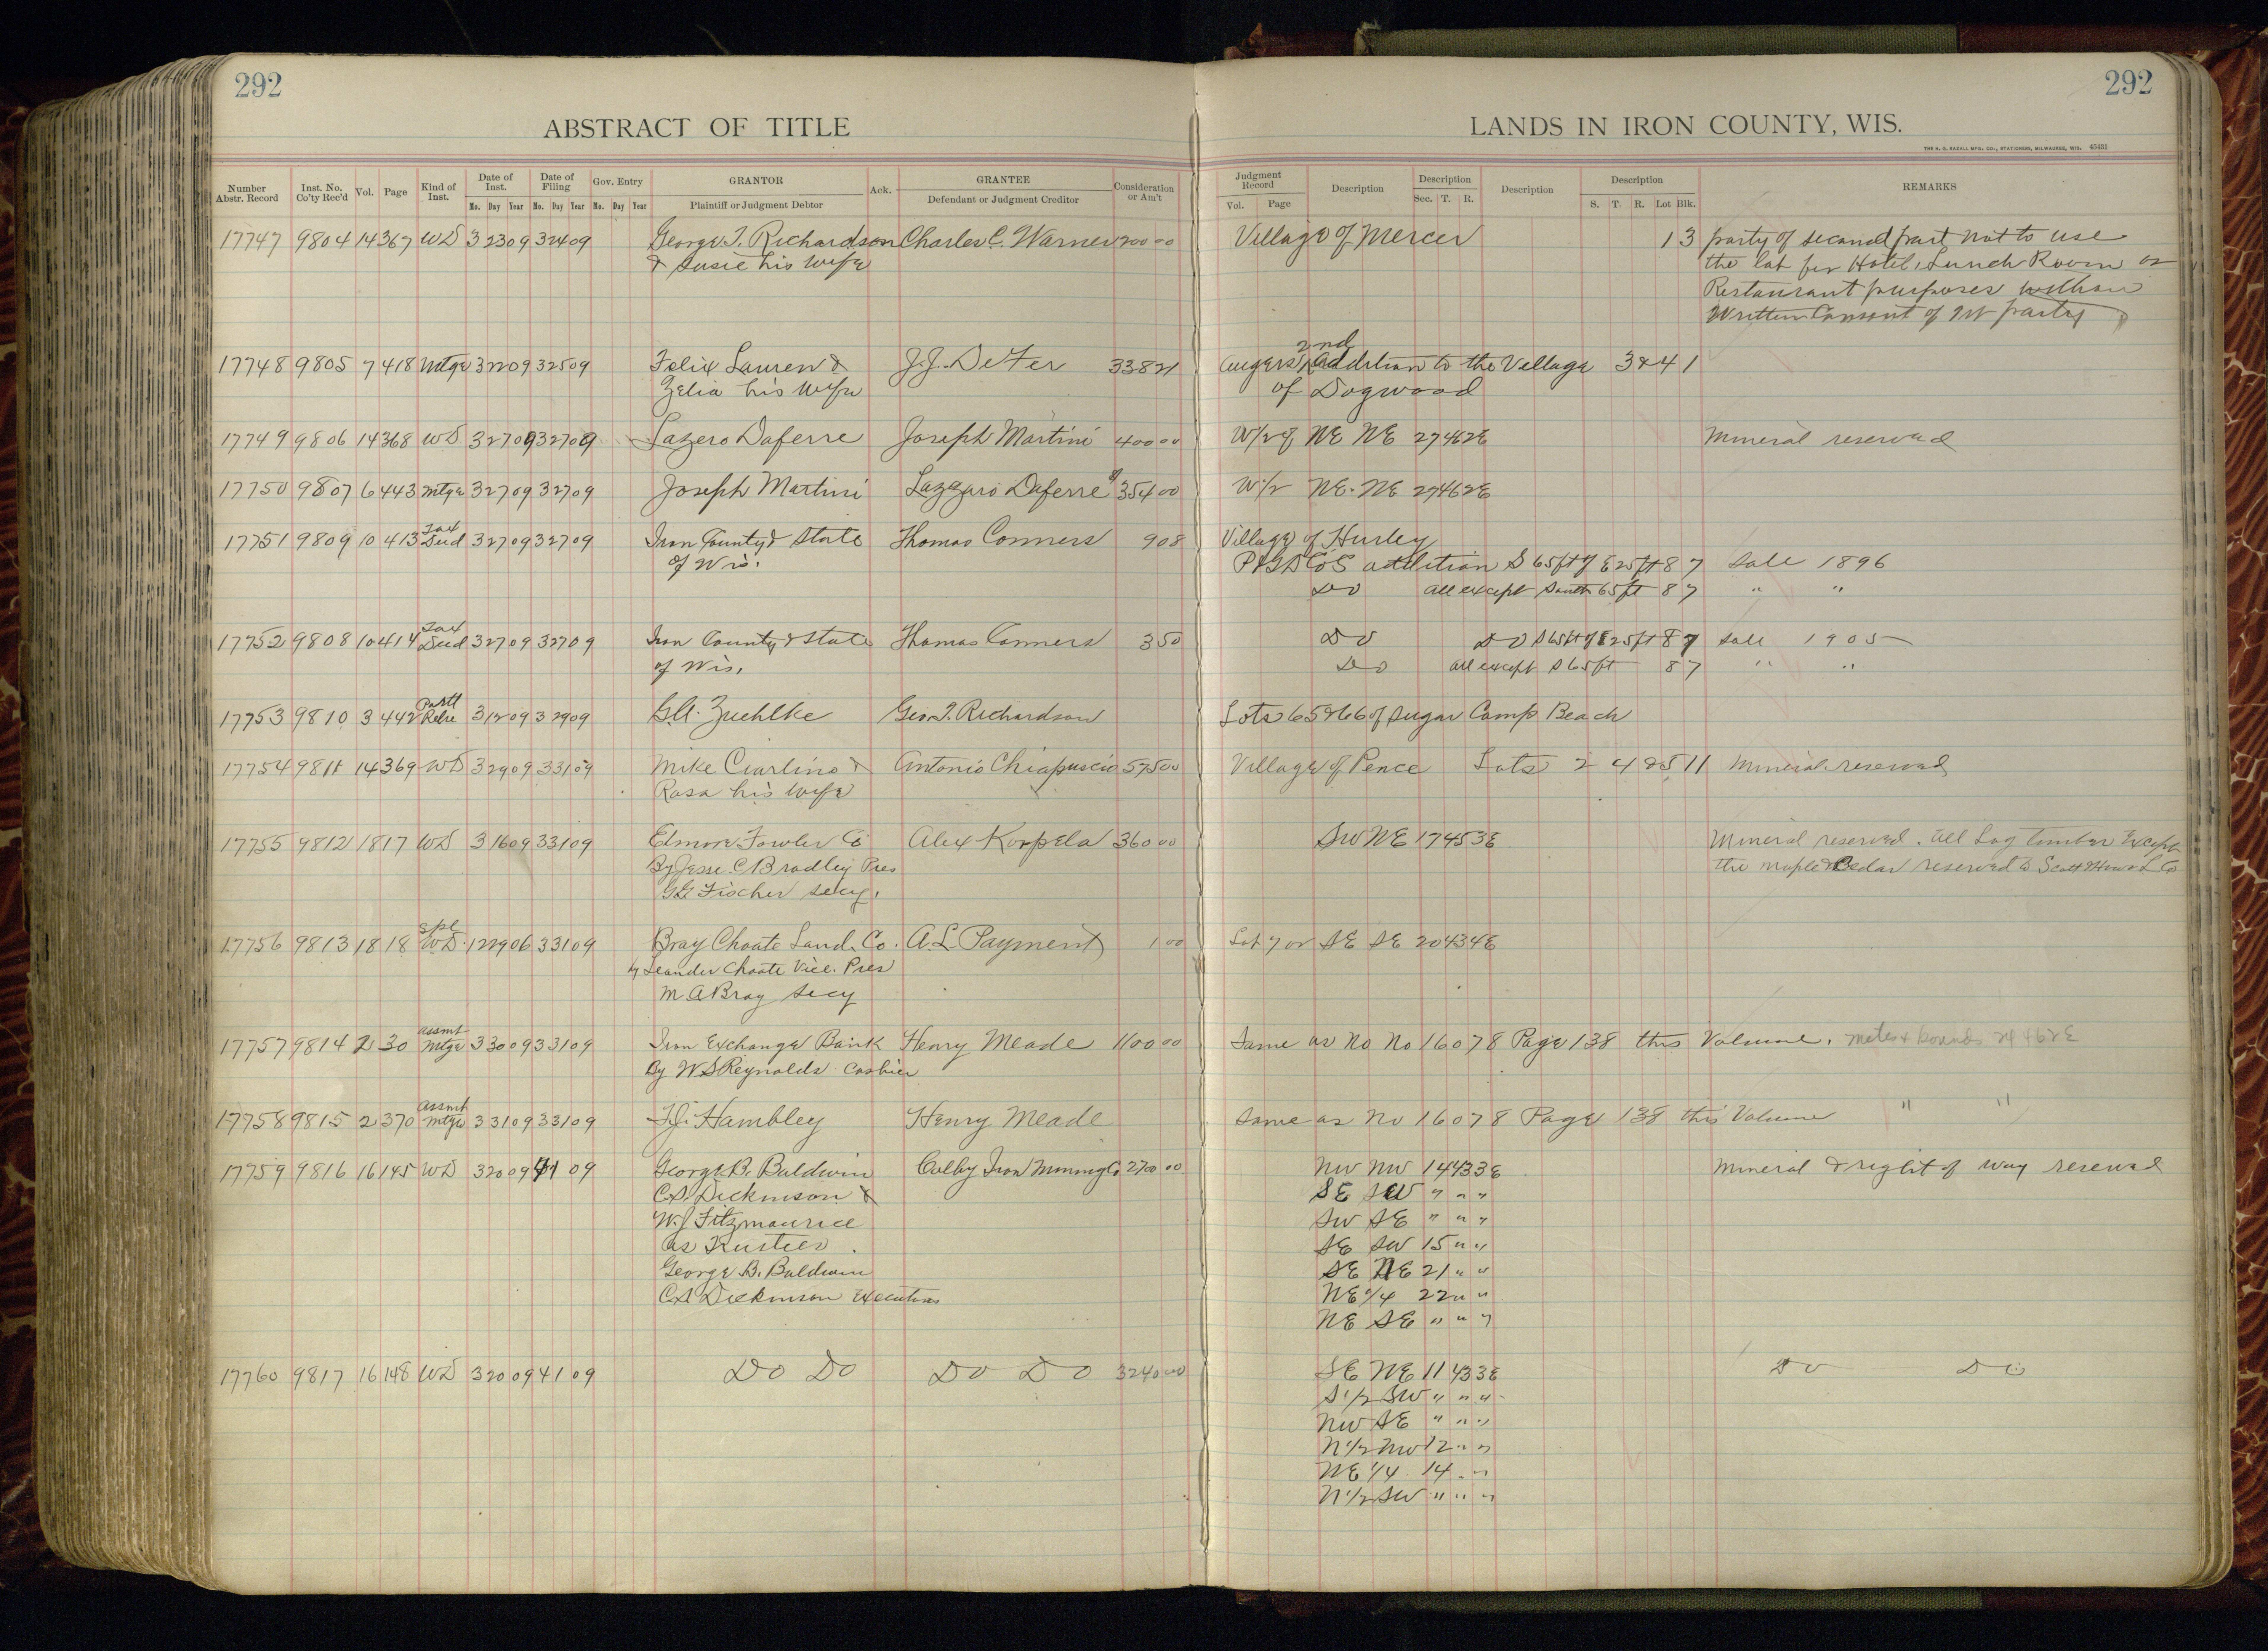 292
292
ABSTRACT OF TITLE
LANDS IN IRON COUNTY, WIS.
THE H. G. RAZALL MFG. CO., STATIONERS, MILWAUKEE, WIS. 45431
Number Abstr. Record Inst. No. Co'ty Rec'd Vol. Page Kind of Inst. Date of Inst. Date of Filing Gov. Entry GRANTOR Ack. GRANTEE Consideration or Am't Judgment Record Description Description Description Description REMARKS
Mo. Day Year Mo. Day Year Mo. Day Year Plaintiff or Judgment Debtor Defendant or Judgment Creditor Vol. Page Sec. T. R. S. T. R. Lot Blk.
17747 9804 14 367 WD 3 23 09 3 24 09 George T. Richardson Charles C. Warner 200 00 Village of Mercer 1 3 party of second part not to use
& Susie his wife the lot for Hotel, Lunch Room or
Restaurant purposes without
Written Consent of 1st party
17748 9805 7 418 Mtge 3 22 09 3 25 09 Felix Lauren & J.J. DeFer 338 21 Augers 2nd Addition to the Village 3&4 1
Zelia his wife of Dogwood
17749 9806 14 368 WD 3 27 09 3 27 09 Lazero Daferre Joseph Martini 400 00 W/2 of NE NE 27 46 2E Mineral reserved
17750 9807 6 443 Mtge 3 27 09 3 27 09 Joseph Martini Lazzaro Daferre $354 00 W 1/2 NE NE 27 46 2E
17751 9809 10 413 Tax Deed 3 27 09 3 27 09 Iron County & State Thomas Conners 9 08 Village of Hurley
of Wis. addition S 65 ft of E 25 ft 8 7 Sale 1896
Do all except South 65 ft 8 7 " "
17752 9808 10 414 Tax Deed 3 27 09 3 27 09 Iron County & State Thomas Conners 3 50 Do Do S 65 ft of E 25 ft 8 7 Sale 1905
of Wis. Do all except S 65 ft 8 7 " "
17753 9810 3 442 Partl Relse 3 12 09 3 29 09 G.A. Zuehlke Geo. T. Richardson Lots 65&66 of Sugar Camp Beach
17754 9811 14 369 WD 3 29 09 3 31 09 Mike Ciarlino & Antonio Chiapuscio 575 00 Village of Pence Lots 2 4 & 5 11 Mineral reserved
Rosa his wife
17755 9812 18 17 WD 3 16 09 3 31 09 Elmore Fowler Co Alex Korpela 360 00 SW NE 17 45 3E Mineral reserved. All Log timber Except
By Jesse C Bradley Pres the maple & Cedar reserved to Scott & Howe L Co
GG Fischer secy.
17756 9813 18 18 Spl WD 12 29 06 3 31 09 Bray Choate Land Co. A.L. Payment 1 00 Lot 7 or SE SE 20 43 4E
by Leander Choate Vice. Pres
M. A Bray secy
17757 9814 2 30 Assmt Mtge 3 30 09 3 31 09 Iron Exchange Bank Henry Meade 1100 00 Same as No No 16078 Page 138 this Volume. metes & bounds 24 46 2E
By W S Reynolds Cashier
17758 9815 2 370 Assmt Mtge 3 31 09 3 31 09 Henry Meade Same as No 16078 Page 138 this Volume " "
Hambley
17759 9816 16 145 WD 3 20 09 4 1 09 George B. Baldwin Colby Iron Mining Co 2700 00 NW NW 14 43 3E Mineral & right of way reserved
C.S. Dickinson & SE SW " " "
W.J Fitzmaurice SW SE " " "
as Trustees. SE SW 15 " "
George B. Baldwin SE NE 21 " "
C.S. Dickinson Executors NE 1/4 22 " "
NE SE " " "
17760 9817 16 148 WD 3 20 09 4 1 09 Do Do Do Do 3240 00 SE NE 11 43 3E Do Do
S 1/2 SW " " "
NW SE " " "
N 1/2 NW 12 " "
NE 1/4 14 " "
N 1/2 SW " " "